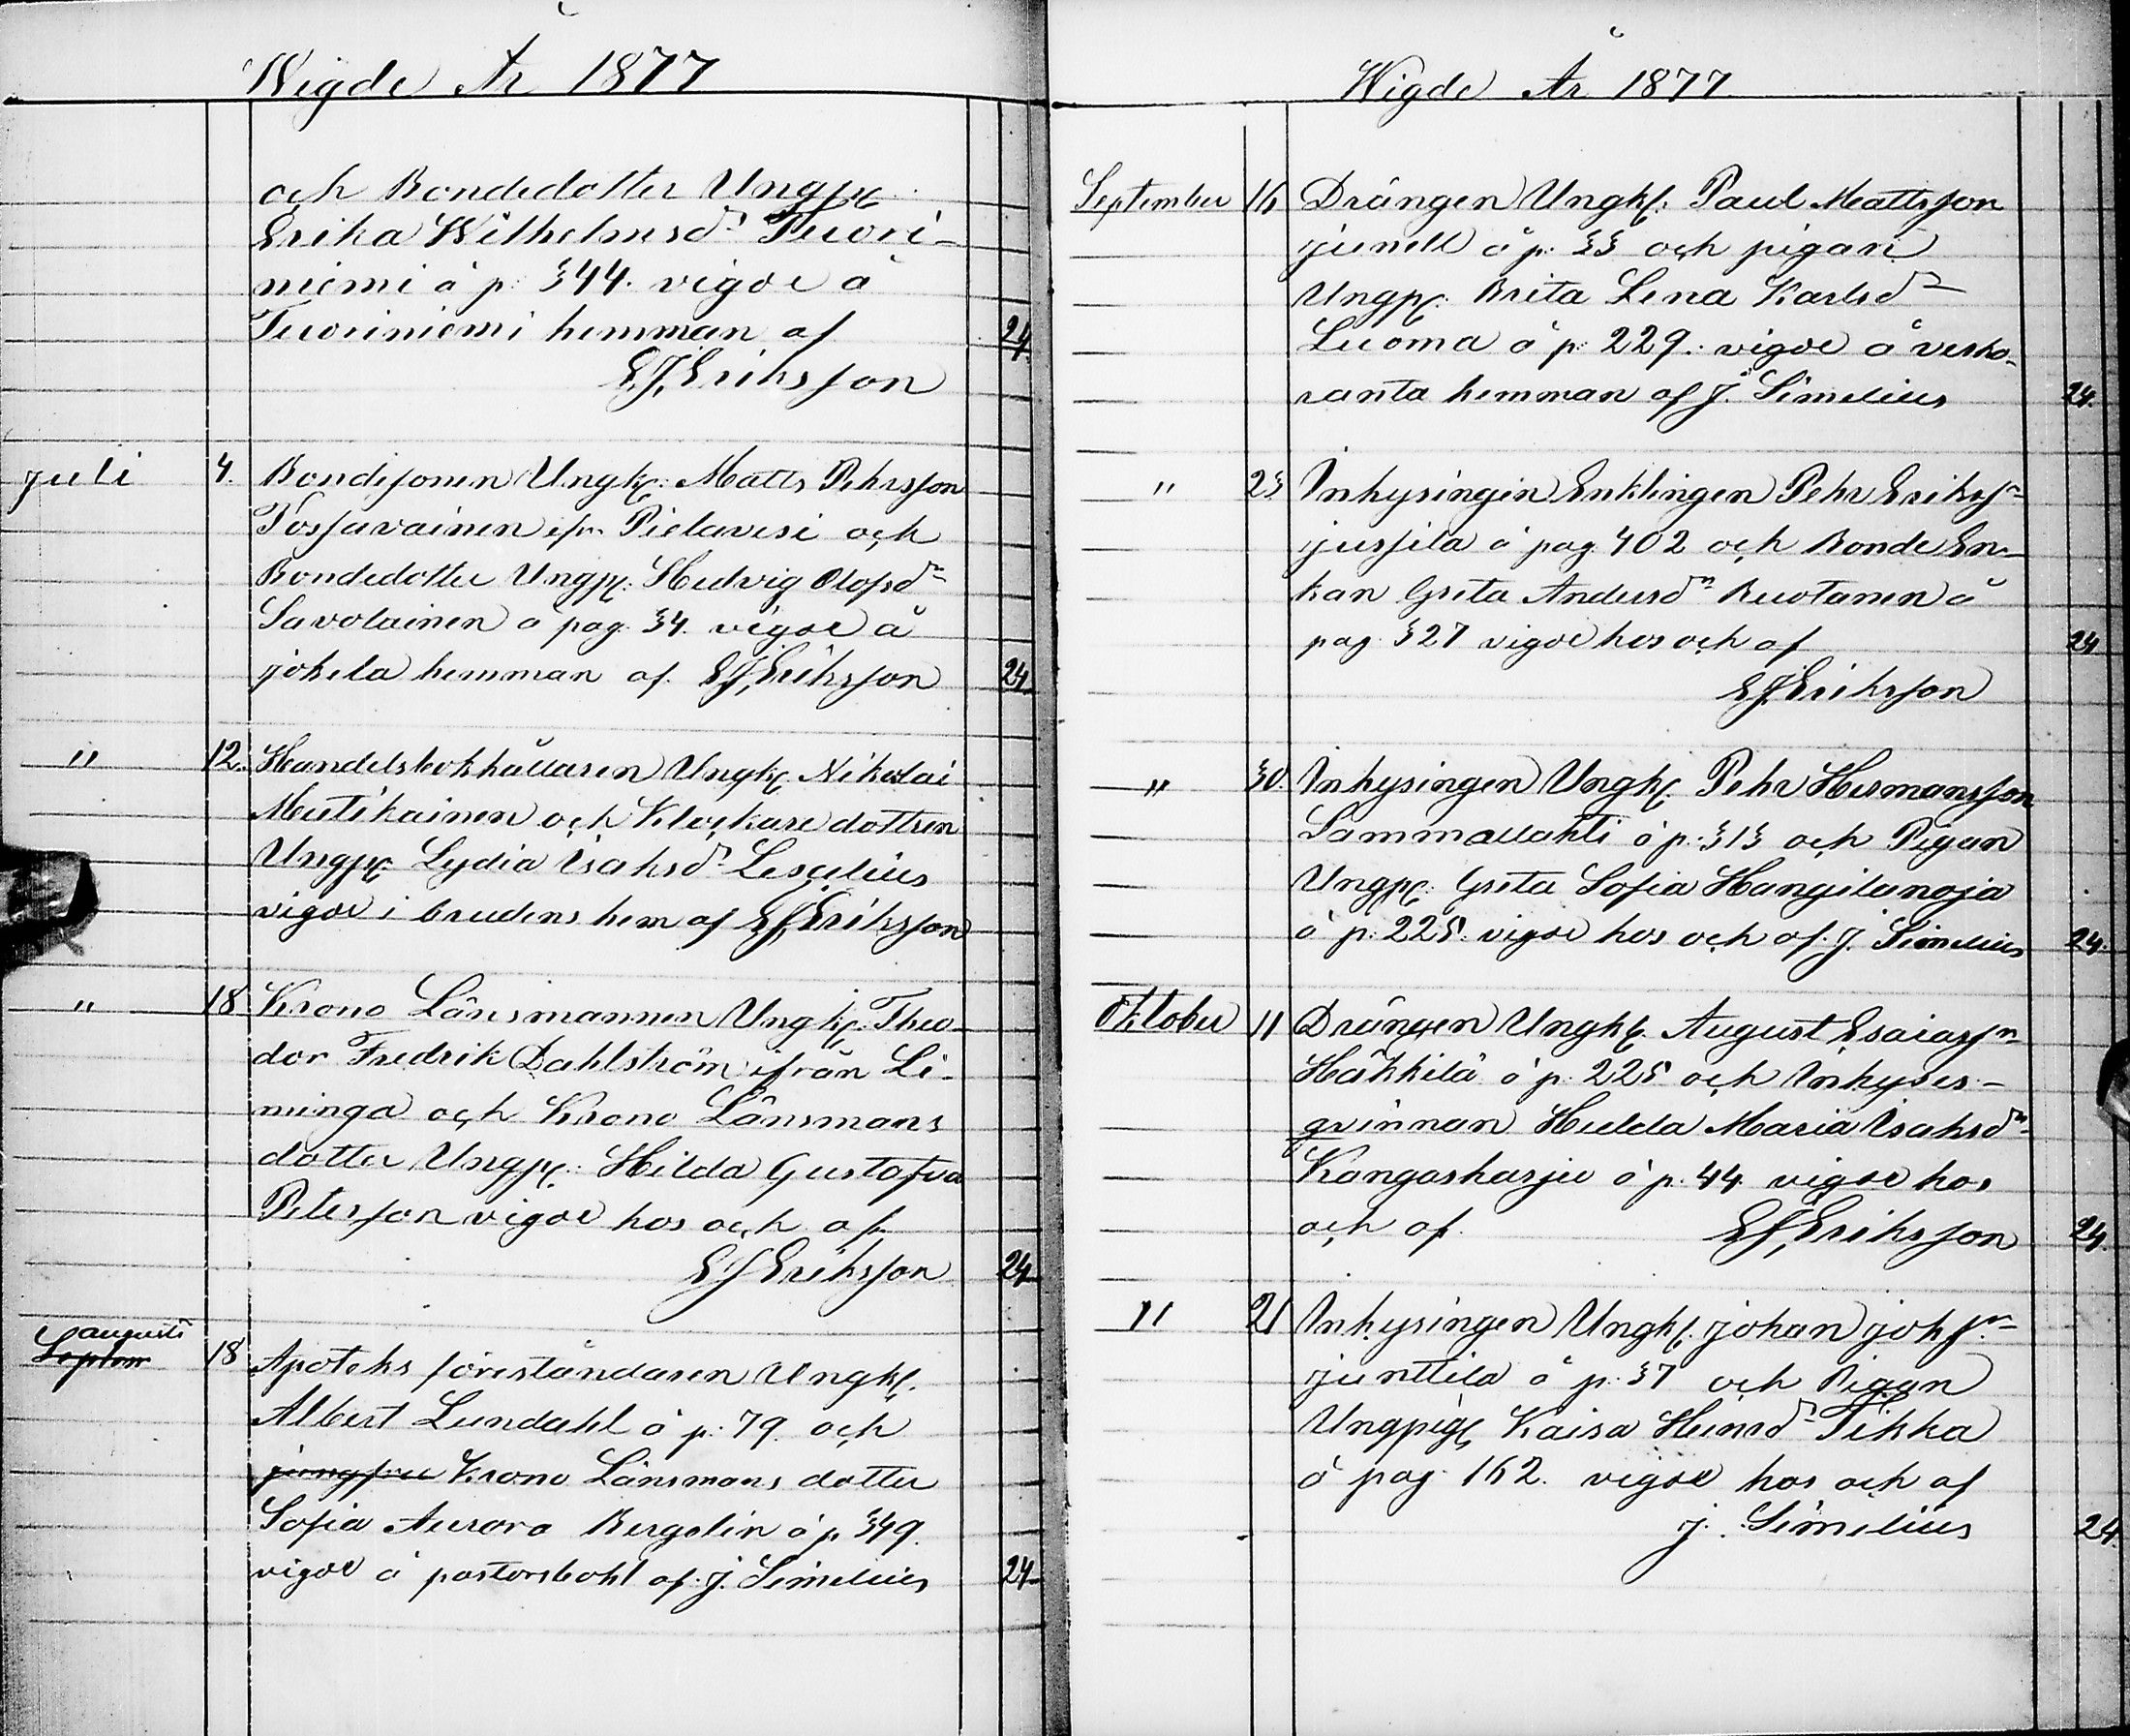 Wigde År 1877
och Bondedotter Ungpig
Erika Wilhelmsdr Tuori-
niemi å p: 344. vigde å
Tuoriniemi hemman af 24
E.J. Eriksson
Juli 4. Bondesonen Ungk. Matts Pehrsson
Tossavainen ifr. Pielavesi och
Bondedotter Ungp. Hedvig Olofsdr
Savolainen å pag. 34. vigde å
Jokela hemman af. E.J. Eriksson 24
" 12. Handelsbokhållaren Ungk. Nikolai
Mutikainen och Klockare dottren
Ungp. Lydia Isaksdr Lescelius
vigde i brudens hem af E.J. Eriksson
" 18 Krono Länsmannen Ungk. Theo-
dor Fredrik Dahlström ifrån Li-
minga och Krono Länsmans
dotter Ungp. Hilda Gustafva
Peterson vigde hos och af
E.J. Eriksson 24
augusti
Septem 18 Apoteks föreståndaren Ungk.
Albert Lundahl å p: 79. och
jungfru Krono Länsmans dotter
Sofia Aurora Bergelin å p 349.
vigde å pastorsbohl af. J. Simelius 24
Wigde År 1877
September 16 Drängen Ungk. Paul Mattsson
Junell å p: 33 och pigan
Ungp. Brita Lena Karlsdr
Luoma å p: 229. vigde å vesko-
ranta hemman af J. Simelius 24.
" 23 Inhysingen Enklingen Pehr Eriksn
Jussila å pag. 402 och Bonde En-
kan Greta Andersdr Ruotanen å
pag 327 vigde hos och af 24
E.J. Eriksson
" 30. Inhysingen Ungk. Pehr Hermansson
Sammallahti å p: 313 och Pigan
Ungp. Greta Sofia Hangilanoja
å p: 225. vigde hos och af. J. Simelius 24.
Oktober 11 Drängen Ungk. August Esaiasn
Häkkilä å p. 225 och Inhyses-
qvinnan Hulda Maria Isaksdr
Kangasharju å p. 44 vigde hos
och af. E.J. Eriksson 24.
" 21 Inhysingen Ungk. Johan Johsn
Junttila å p. 37 och Pigan
Ungpig. Kaisa Heinrdr Tikka
å pag. 162. vigde hos och af
J. Simelius 24.